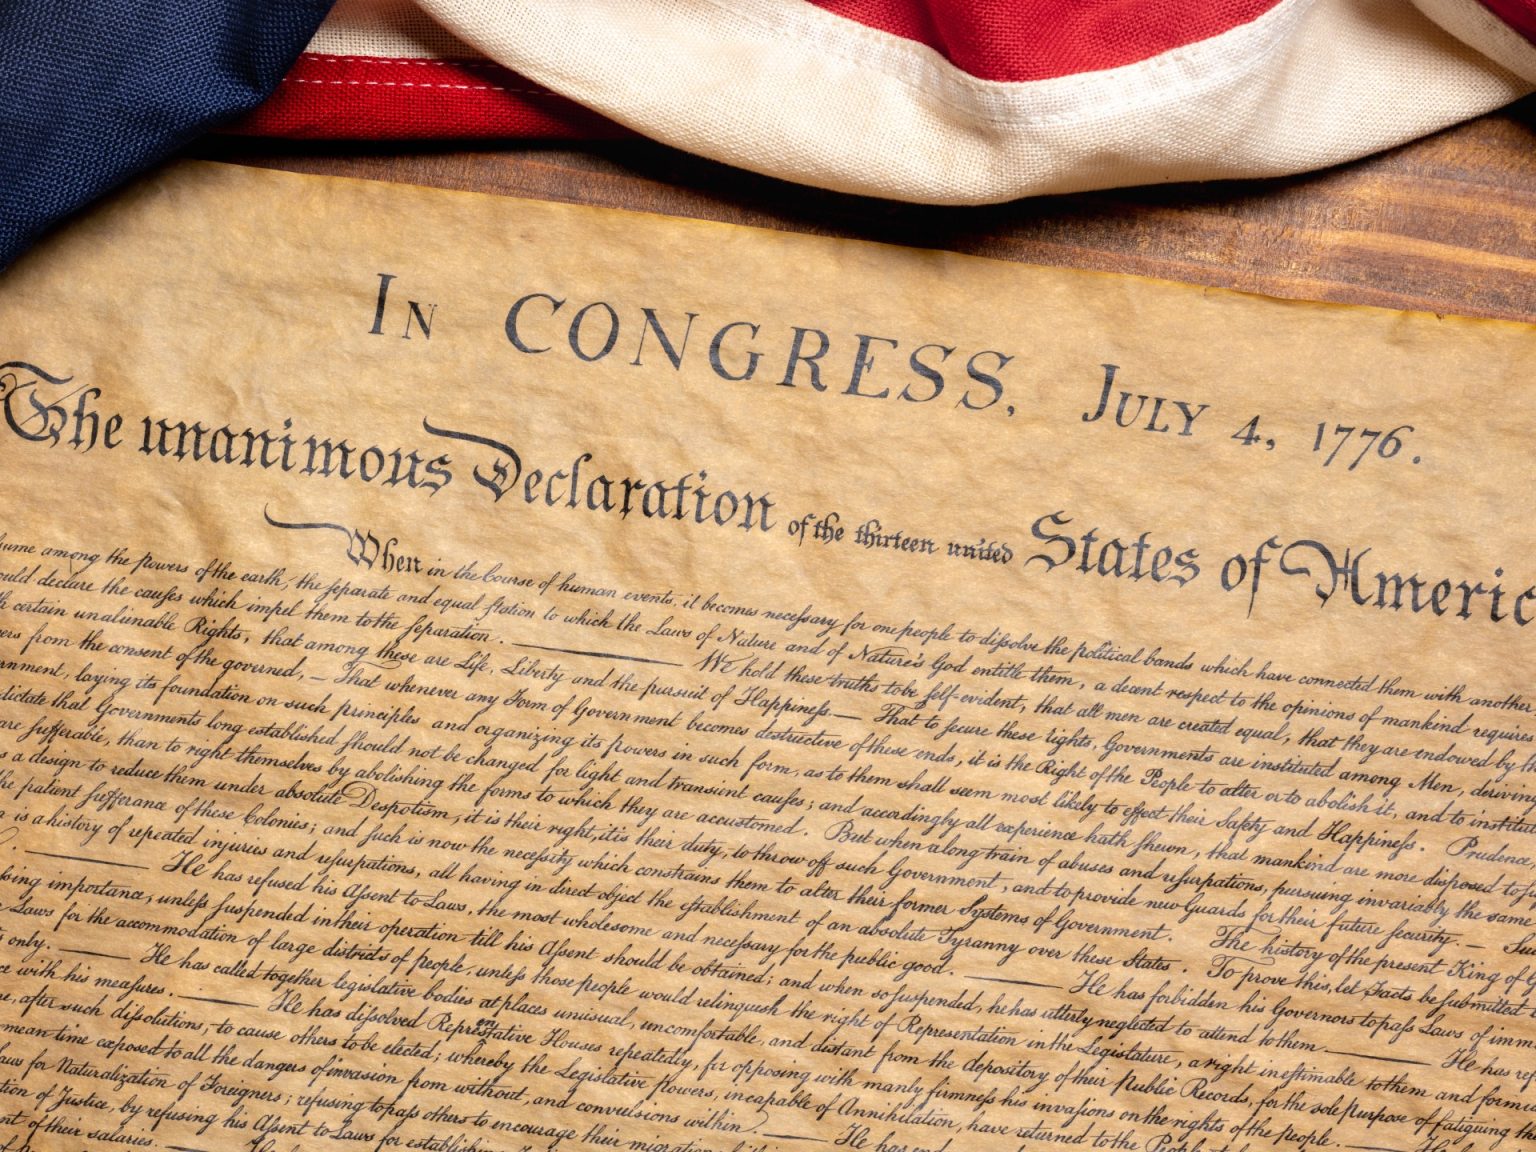 In CONGRESS, July 4, 1776.
The unanimous Declaration of the thirteen united States of Americ
When in the Course of human events, it becomes necessary for one people to dissolve the political bands which have connected them with another
ume among the powers of the earth, the separate and equal station to which the Laws of Nature and of Nature's God entitle them, a decent respect to the opinions of mankind requires
ould declare the causes which impel them to the separation. ——— We hold these truths to be self-evident, that all men are created equal, that they are endowed by th
h certain unalienable Rights, that among these are Life, Liberty and the pursuit of Happiness.— That to secure these rights, Governments are instituted among Men, deriving
ers from the consent of the governed, — That whenever any Form of Government becomes destructive of these ends, it is the Right of the People to alter or to abolish it, and to institut
rnment, laying its foundation on such principles and organizing its powers in such form, as to them shall seem most likely to effect their Safety and Happiness. Prudence,
dictate that Governments long established should not be changed for light and transient causes; and accordingly all experience hath shewn, that mankind are more disposed to su
are sufferable, than to right themselves by abolishing the forms to which they are accustomed. But when a long train of abuses and usurpations, pursuing invariably the same
s a design to reduce them under absolute Despotism, it is their right, it is their duty, to throw off such Government, and to provide new Guards for their future security.— Suc
he patient sufferance of these Colonies; and such is now the necessity which constrains them to alter their former Systems of Government. The history of the present King of G
n is a history of repeated injuries and usurpations, all having in direct object the establishment of an absolute Tyranny over these States. To prove this, let Facts be submitted t
. ——— He has refused his Assent to Laws, the most wholesome and necessary for the public good. ——— He has forbidden his Governors to pass Laws of imm
sing importance, unless suspended in their operation till his Assent should be obtained; and when so suspended, he has utterly neglected to attend to them. ——— He has ref
Laws for the accommodation of large districts of people, unless those people would relinquish the right of Representation in the Legislature, a right inestimable to them and formi
s only. ——— He has called together legislative bodies at places unusual, uncomfortable, and distant from the depository of their public Records, for the sole purpose of fatiguing the
ce with his measures. ——— He has dissolved Representative Houses repeatedly, for opposing with manly firmness his invasions on the rights of the people. ——— He
e, after such dissolutions, to cause others to be elected; whereby the Legislative powers, incapable of Annihilation, have returned to the People
mean time exposed to all the dangers of invasion from without, and convulsions within. ——— He has en
aws for Naturalization of Foreigners; refusing to pass others to encourage their migration
tion of Justice, by refusing his Assent to Laws for establishing
nt of their salaries. ——— He